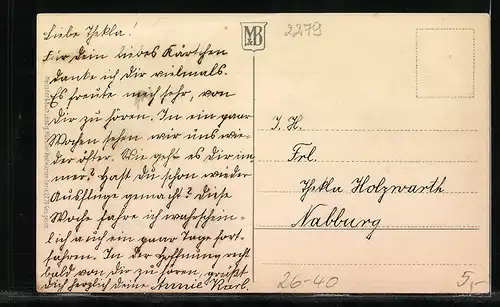 Liebe Thekla!
Für dein liebes Kärtchen
danke ich dir vielmals.
Es freute mich sehr, von
dir zu hören. In ein paar
Wochen sehen wir uns wie-
der öfter. Wie geht es dir im-
mer? Hast du schon wieder
Ausflüge gemacht? Diese
Woche fahre ich wahrschein-
lich auch ein paar Tage fort-
fahren. In der Hoffnung recht
bald von dir zu hören, grüßt
dich herzlich deine Annie Karl.
MB&D
2279
I. H.
Frl.
Thekla Holzwarth
Nabburg
26-40
5,-